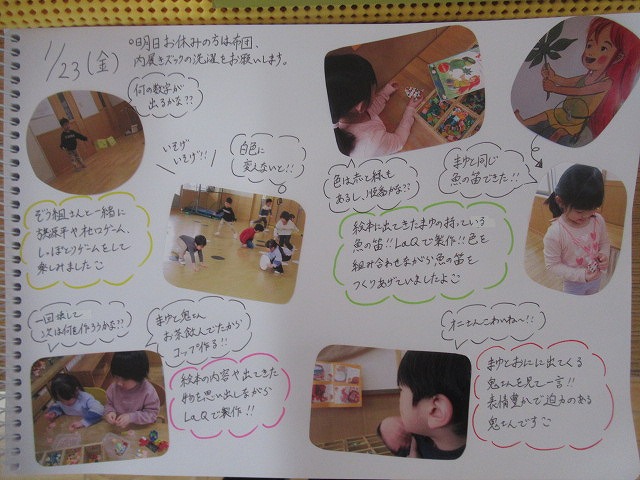 1/23(金)
○明日お休みの方は布団、
内履きズックの洗濯をお願いします。
何の数字が
出るかな??
いそげ
いそげ!!
白色に
変えないと!!
ぞう組さんと一緒に
オセロゲーム、
しっぽとりゲームをして
楽しみました
色は赤と緑も
あるし、
まゆと同じ
魚の笛できた!!
絵本に出てきたまゆの持っている
魚の笛!!LaQで製作!!色を
組み合わせながら魚の笛を
つくりあげていましたよ
一回決して
次は何を作ろうかな??
まゆと鬼さん
お茶飲んでたから
コップ作る!!
絵本の内容や出てきた
物を思い出しながら
LaQで製作!!
オニさんこわいね〜!!
まゆとおにに出てくる
鬼さんを見て一言!!
表情豊かで迫力のある
鬼さんです